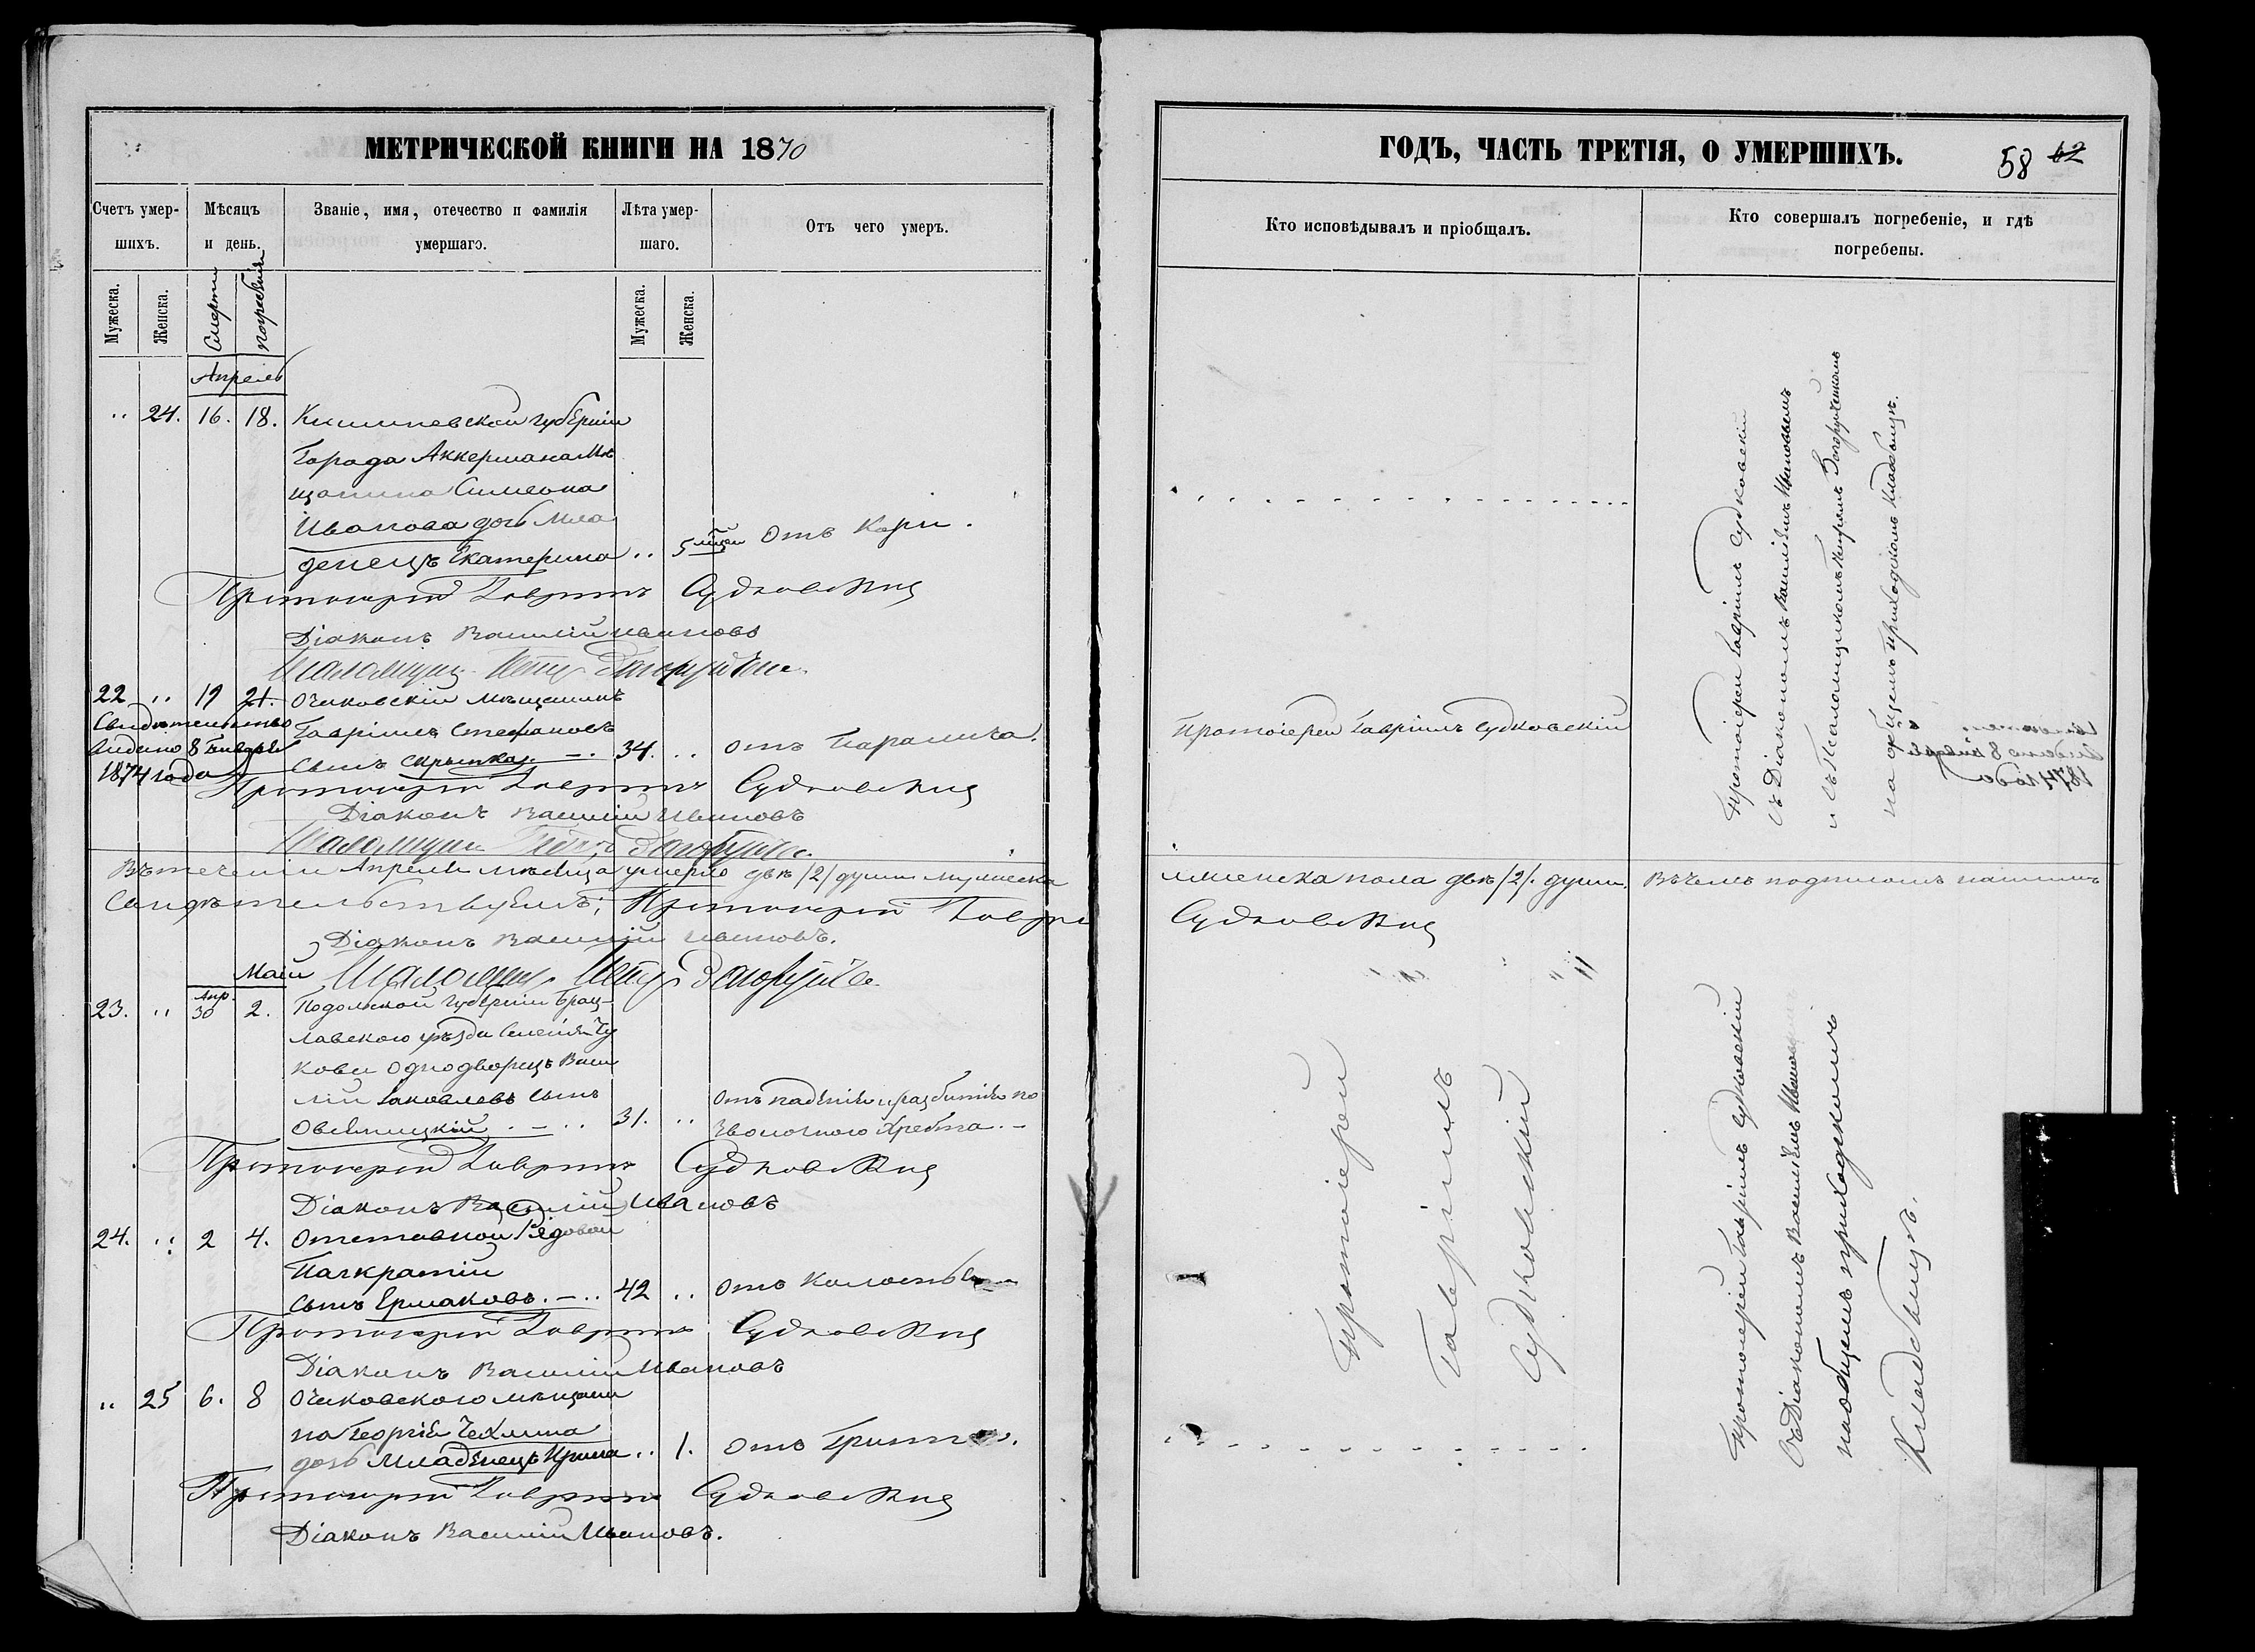 МЕТРИЧЕСКОЙ КНИГИ НА 1870
Счетъ умершихъ.
Мѣсяцъ и день.
Званіе, имя, отечество и фамилія умершаго.
Лѣта умершаго.
Отъ чего умеръ.
Мужеска.
Женска.
Смерти
погребенія
Мужеска.
Женска.
Апрель
.. 24. 16. 18. Кишиневской губерніи
Города Аккермана Мѣ
щанина Симеона
Иванова дочь Мла
денецъ Екатерина .. 5 мѣсяц Отъ Кори.
Протоіерей Гавріилъ Судковскій
Діаконъ Василій Ивановъ
Паламарь Петръ Запоруйченко
22 .. 19 21. Очаковскій мѣщанинъ
Свидѣтельство
Гавріилъ Стефановъ
выдано 8 Января
сынъ Скрыпка. — . 34. .. отъ Паралича.
1874 года
Протоіерей Гавріилъ Судковскій
Діаконъ Василій Ивановъ
Паламарь Петръ Запоруйченко
Въ теченіи Апреля мѣсяца умерло двѣ /2/ души мужеска
Свидѣтельствуемъ; Протоіерей Гаврі
Діаконъ Василій Ивановъ.
Май
Паламарь Петръ Запоруйченко
23. .. Апр. 30 2. Подольской губерніи Брац-
лавскаго уѣзда Селенія Чу
кова Однодворецъ Васи
лій Іаковлевъ сынъ
Овсяницкій . — .. 31. .. Отъ паденія и разбитія по
звоночнаго хребта. —
Протоіерей Гавріилъ Судковскій
Діаконъ Василій Ивановъ
24. .. 2 4. Отставной Рядовой
Панкратій
сынъ Ермаковъ. — .. 42 .. Отъ
Протоіерей Гавріилъ Судковскій
Діаконъ Василій Ивановъ
.. 25 6. 8 Очаковскаго мѣщани
на Георгія Чехлина
дочь Младенецъ Ирина .. 1. Отъ
Протоіерей Гавріилъ Судковскій
Діаконъ Василій Ивановъ.
ГОДЪ, ЧАСТЬ ТРЕТІЯ, О УМЕРШИХЪ.
58 62
Кто исповѣдывалъ и пріобщалъ.
Кто совершалъ погребеніе, и гдѣ погребены.
Протоіерей Гавріилъ Судковскій
съ Діакономъ Василіемъ Ивановымъ
и съ Паламаремъ Петромъ Запоруйченкомъ
на общемъ приходскомъ кладбищѣ.
Протоіерей Гавріилъ Судковскій
и женска пола двѣ /2/. души. Въ чемъ подписомъ нашимъ
Судковскій
Протоіерей
Гавріилъ
Судковскій
Протоіерей Гавріилъ Судковскій
съ Діакономъ Василіемъ Ивановымъ
на общемъ приходскомъ
Кладбищѣ.